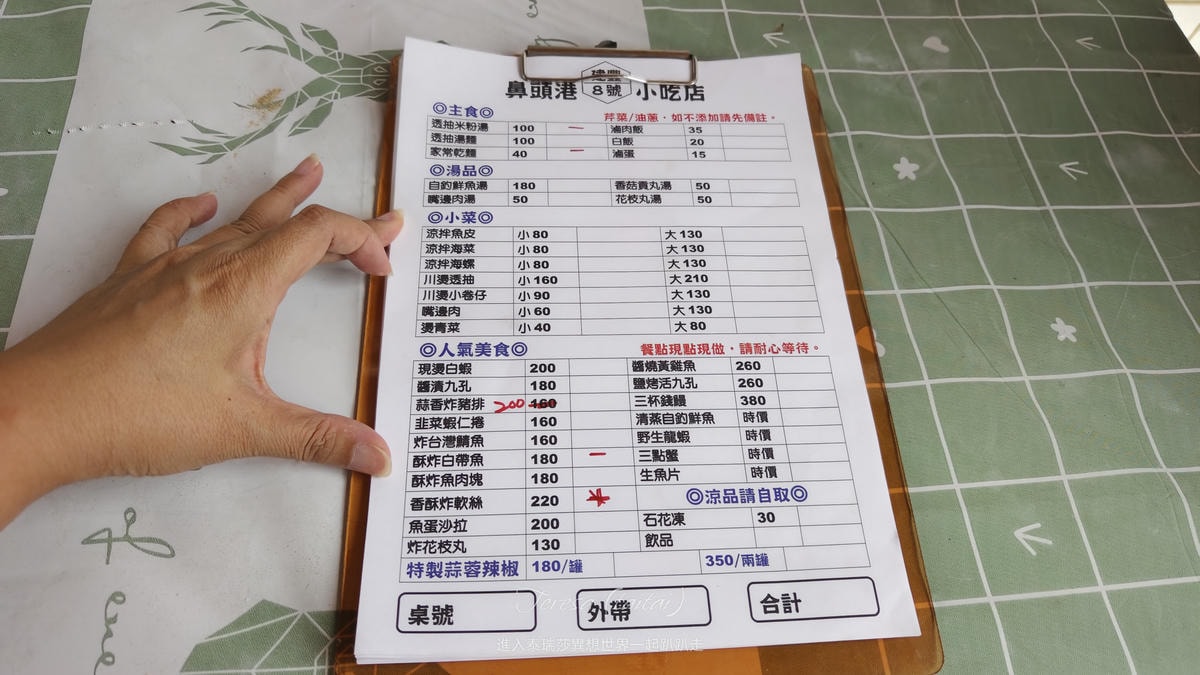 鼻頭港 8號 小吃店
◎主食◎ 芹菜/油蔥，如不添加請先備註。
透抽米粉湯 100 一 滷肉飯 35
透抽湯麵 100 白飯 20
家常乾麵 40 一 滷蛋 15
◎湯品◎
自釣鮮魚湯 180 香菇貢丸湯 50
嘴邊肉湯 50 花枝丸湯 50
◎小菜◎
涼拌魚皮 小80 大130
涼拌海菜 小80 大130
涼拌海螺 小80 大130
川燙透抽 小160 大210
川燙小卷仔 小90 大130
嘴邊肉 小60 大130
燙青菜 小40 大80
◎人氣美食◎ 餐點現點現做，請耐心等待。
現燙白蝦 200 醬燒黃雞魚 260
醬漬九孔 180 鹽烤活九孔 260
蒜香炸豬排 200 160 三杯錢鰻 380
韭菜蝦仁捲 160 清蒸自釣鮮魚 時價
炸台灣鯖魚 160 野生龍蝦 時價
酥炸白帶魚 180 一 三點蟹 時價
酥炸魚肉塊 180 生魚片 時價
香酥炸軟絲 220 ◎涼品請自取◎
魚蛋沙拉 200 石花凍 30
炸花枝丸 130 飲品
特製蒜蓉辣椒 180/罐 350/兩罐
桌號 外帶 合計
進入泰瑞莎異想世界一起趴趴走